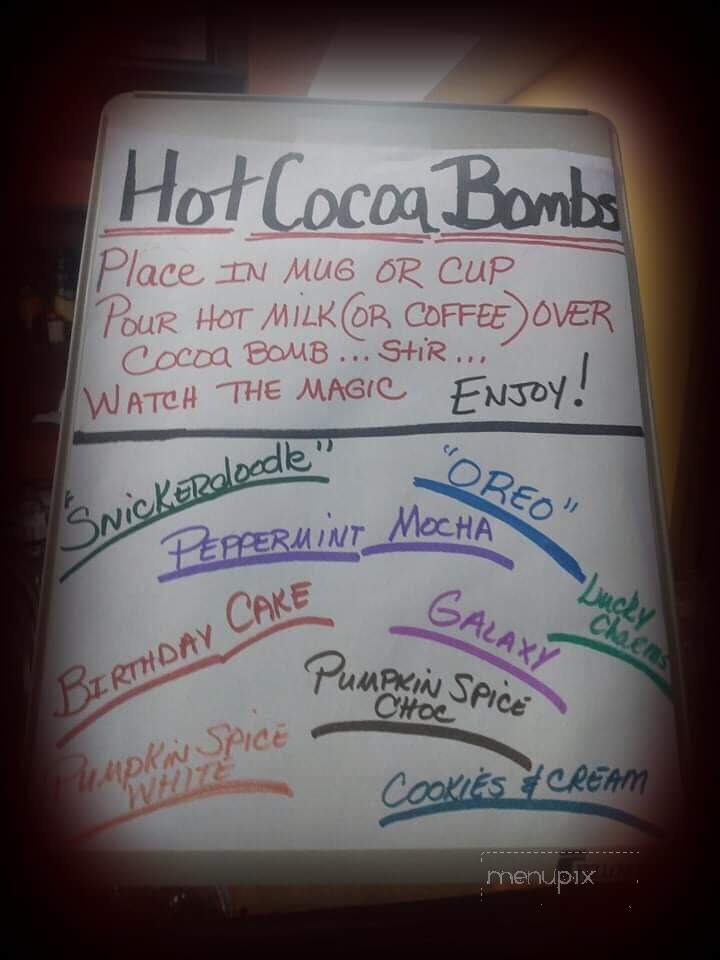 Hot Cocoa Bombs
Place IN MUG OR CUP
POUR HOT MILK (OR COFFEE) OVER
COCOA BOMB... StiR...
WATCH THE MAGIC ENJOY!
"SNICKERdoodle"
"OREO"
PEPPERMINT MOCHA
Lucky
Charms
BIRTHDAY CAKE
GALAXY
PUMPKIN SPICE
CHOC
PUMPKIN SPICE
WHITE
COOKIES & CREAM
menupix